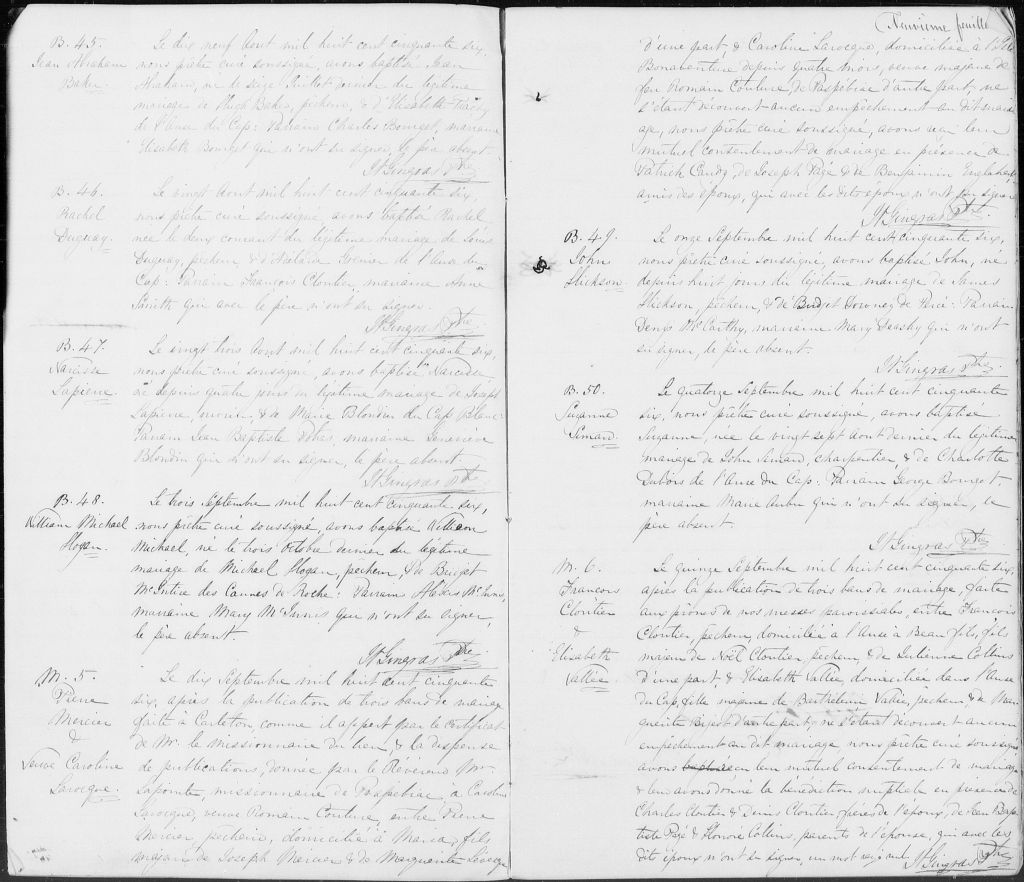 B. 45.
Jean Abraham
Baker.
Le dix neuf Aout mil huit cent cinquante six,
nous prêtre curé soussigné, avons baptisé Jean
Abraham, né le seize Juillet dernier du légitime
mariage de Hugh Baker, pêcheur, & d'Elisabeth
de l'Anse du Cap: Parrain Charles Bourget, marraine
Elisabeth Bourget qui n'ont su signer, le père absent.
St Gingras Ptre
B. 46.
Rachel
Duguay.
Le vingt Aout mil huit cent cinquante six,
nous prêtre curé soussigné, avons baptisé Rachel
née le deux courant du légitime mariage de Louis
Duguay, pêcheur, & d' de l'Anse du
Cap: Parrain François Cloutier, marraine Anne
Smith qui avec le père n'ont su signer.
St Gingras Ptre
B. 47.
Narcisse
Lapierre.
Le vingt trois Aout mil huit cent cinquante six,
nous prêtre curé soussigné, avons baptisé Narcisse
né depuis quatre jours du légitime mariage de Joseph
Lapierre, & de Marie Blondin du Cap Blanc:
Parrain Jean Baptiste marraine Geneviève
Blondin qui n'ont su signer, le père absent.
St Gingras Ptre
B. 48.
William Michael
Hogan.
Le trois Septembre mil huit cent cinquante six,
nous prêtre curé soussigné, avons baptisé William
Michael, né le trois Octobre dernier du légitime
mariage de Michael Hogan, pêcheur, & de Bridget
McIntire des Cannes de Roche: Parrain McInnis,
marraine Mary McInnis qui n'ont su signer
le père absent.
St Gingras Ptre
M. 5
Pierre
Mercier
&
Veuve Caroline
Larocque.
Le dix Septembre mil huit cent cinquante
six, après la publication de trois bans de mariage
faite à Carleton comme il appert par le certificat
de Mr. le missionnaire du lieu, & la dispense
de publications, donnée par le Révérend Mr.
Lapointe, missionnaire de Paspébiac, à Caroline
Larocque, veuve Romain Couture, entre Pierre
Mercier, pêcheur, domicilié à Maria, fils
majeur de Joseph Mercier & de Marguerite
(Neuvième feuille
d'une part & Caroline Larocque, domiciliée à l'Ile
Bonaventure depuis quatre mois, veuve majeure de
feu Romain Couture de Paspébiac d'autre part, ne
s'étant découvert aucun empêchement au dit mari-
age, nous prêtre curé soussigné, avons reçu leur
mutuel consentement de mariage en présence de
Patrick Candy, de Joseph Pagé & de Benjamin
amis des époux, qui avec les dits époux n'ont su signer
St Gingras Ptre
B. 49.
John
Hickson.
Le onze Septembre mil huit cent cinquante six,
nous prêtre curé soussigné, avons baptisé John, né
depuis huit jours du légitime mariage de James
Hickson, pêcheur, & de Bridget de Percé: Parrain
Denys McCarthy, marraine Mary qui n'ont
su signer, le père absent.
St Gingras Ptre
B. 50.
Suzanne
Simard.
Le quatorze Septembre mil huit cent cinquante
six, nous prêtre curé soussigné, avons baptisé
Suzanne, née le vingt sept Aout dernier du légitime
mariage de John Simard, charpentier & de Charlotte
Dubois de l'Anse du Cap: Parrain George Bourget
marraine Marie Aubin qui n'ont su signer, le
père absent.
St Gingras Ptre
M. 6.
François
Cloutier
&
Elisabeth
Vallée.
Le quinze Septembre mil huit cent cinquante six,
après la publication de trois bans de mariage, faite
aux prônes de nos messes paroissiales entre François
Cloutier, pêcheur, domicilié à l'Anse à Beau fils, fils
majeur de Noël Cloutier pêcheur & de Julienne Collins
d'une part, & Elisabeth Vallée, domiciliée dans l'Anse
du Cap, fille majeure de Barthélemi Vallée, pêcheur, & de Mar-
guerite d'autre part, ne s'étant découvert aucun
empêchement au dit mariage nous prêtre curé soussigné
avons eu leur mutuel consentement de mariage
& leur avons donné la bénédiction nuptiale en présence de
Charles Cloutier & Denis Cloutier, frères de l'époux, de Jean Bap-
tiste Pagé & Honoré Collins, parents de l'épouse, qui avec les
dits époux n'ont su signer. un mot rayé nul.
St Gingras Ptre